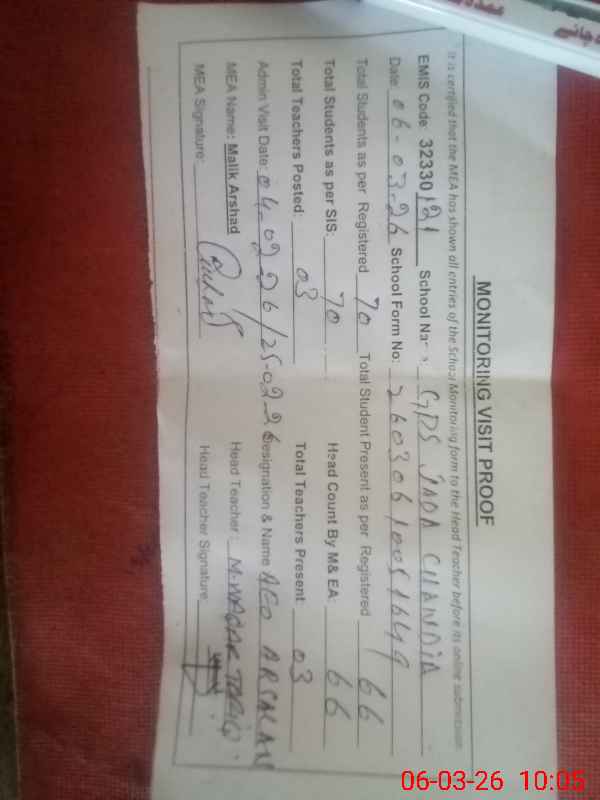 MONITORING VISIT PROOF
It is certified that the MEA has shown all entries of the School Monitoring form to the Head Teacher before its online submission
EMIS Code: 32330121 School Name: GPS JADA CHANDIA
Date: 06-03-26 School Form No: 26030610051649
Total Students as per Registered 70 Total Student Present as per Registered 66
Total Students as per SIS: 70 Head Count By M& EA: 66
Total Teachers Posted: 03 Total Teachers Present 03
Admin Visit Date: 04-02-26/25-02-26 Designation & Name AEO ARSALAN
MEA Name: Malik Arshad Head Teacher: M. WAQAR
MEA Signature: Head Teacher Signature
06-03-26 10:05